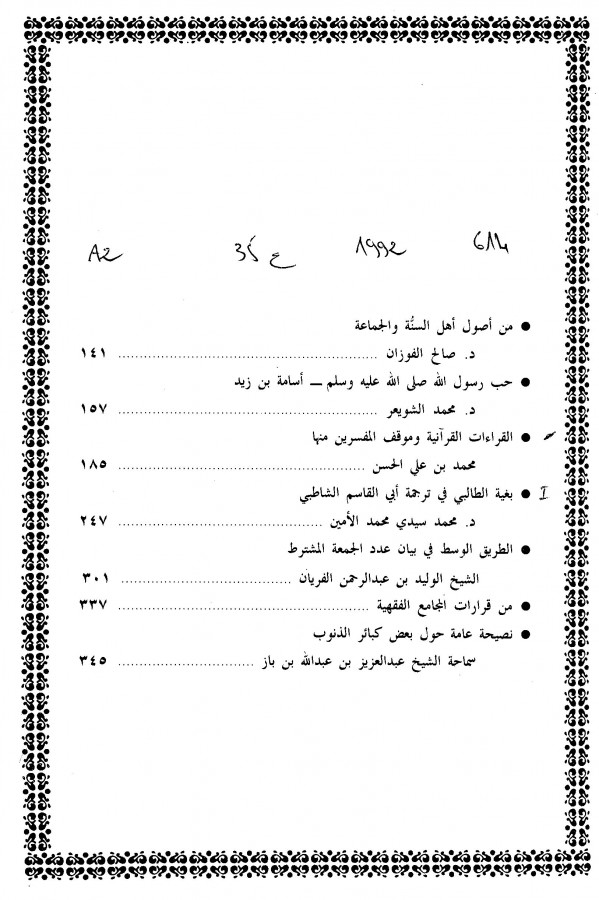 A2 35 ع 1992 614
● من أصول أهل السنُّة والجماعة
د. صالح الفوزان ........................................ ١٤١
● حب رسول الله صلى الله عليه وسلم ــ أسامة بن زيد
د. محمد الشويعر ........................................ ١٥٧
● القراءات القرآنية وموقف المفسرين منها
محمد بن علي الحسن ........................................ ١٨٥
I ● بغية الطالبي في ترجمة أبي القاسم الشاطبي
د. محمد سيدي محمد الأمين ................................ ٢٤٧
● الطريق الوسط في بيان عدد الجمعة المشترط
الشيخ الوليد بن عبدالرحمن الفريان ........................... ٣٠١
● من قرارات المجامع الفقهية ........................................ ٣٣٧
● نصيحة عامة حول بعض كبائر الذنوب
سماحة الشيخ عبدالعزيز بن عبدالله بن باز ...................... ٣٤٥